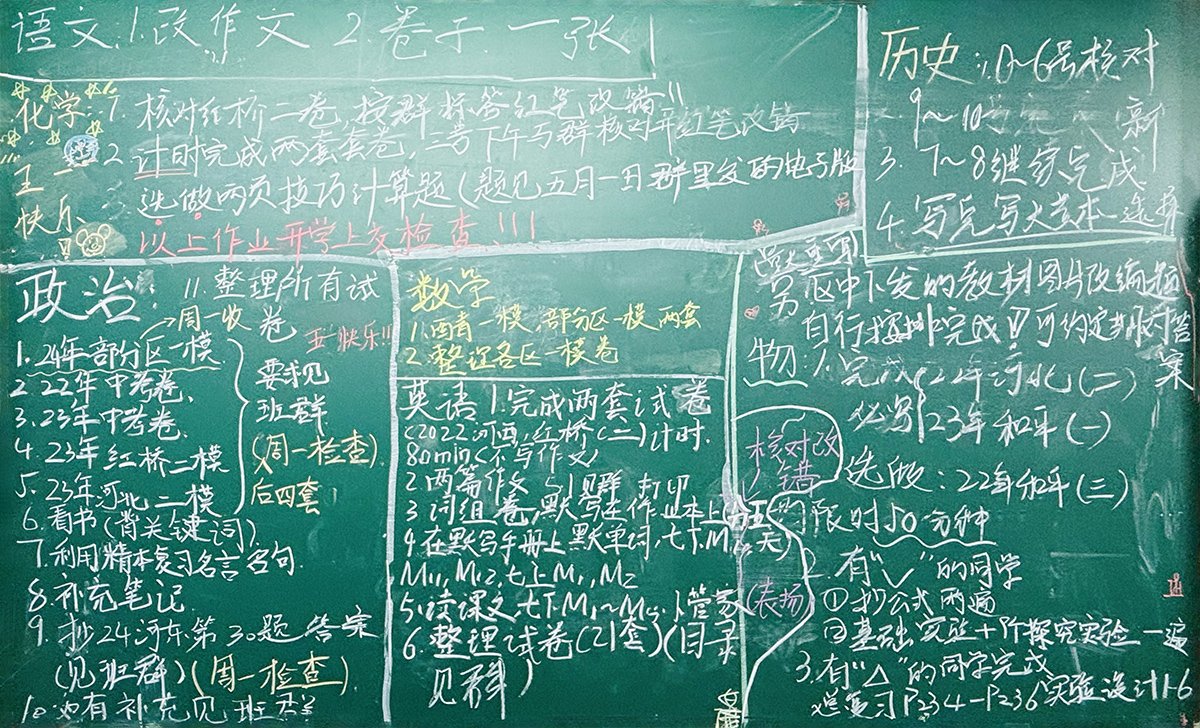 语文:1.改作文 2.卷子.一张
化学:1. 核对红桥二卷,按群标答红笔改错!!
2. 计时完成两套套卷,三号下午与群核对并红笔改错
选做两页技巧计算题(题见五月一日群里发的电子版
以上作业开学上交检查!!!
五一
快乐
历史:1.1~6号核对
9~10
3. 7~8继续完成
4. 写完写大
政治 11.整理所有试卷
→周一收
五一快乐!!
1. 24年部分区一模
2. 22年中考卷.
3. 23年中考卷.
4. 23年红桥二模
5. 23年河北二模
要求见
班群
(周一检查)
后四套
6. 看书(背关键词)
7. 利用精本复习名言名句
8. 补充笔记
9. 抄24河东第30题答案
(见班群)(周一检查)
10. 如有补充见班群
数学
1. 西青一模,部分区一模两套
2. 整理各区一模卷
英语 1.完成两套试卷
(2022河西,红桥(二)计时.
80min<不写作文)
2. 两篇作文 见群 打印
3. 词组卷,默写在作业本上(五天)
4. 在默写手册上默单词,七下M
M11,M12,七上M1,M2
5. 读课文,七下M1~M
6. 整理试卷(21套)(目录
见群)
另 区中下发的教材图片改编题
自行安排完成!可约定时对答案
物:1.完成
22年河北(二)
必写 23年和平(一)
核对改错
选做:22年和平(三)
限时50分钟
(表扬)
2. 有“✓”的同学
①抄公式两遍
②基础实验+阶探究实验一遍
3. 有“△”的同学完成
总复习P234-P236实验设计1-6